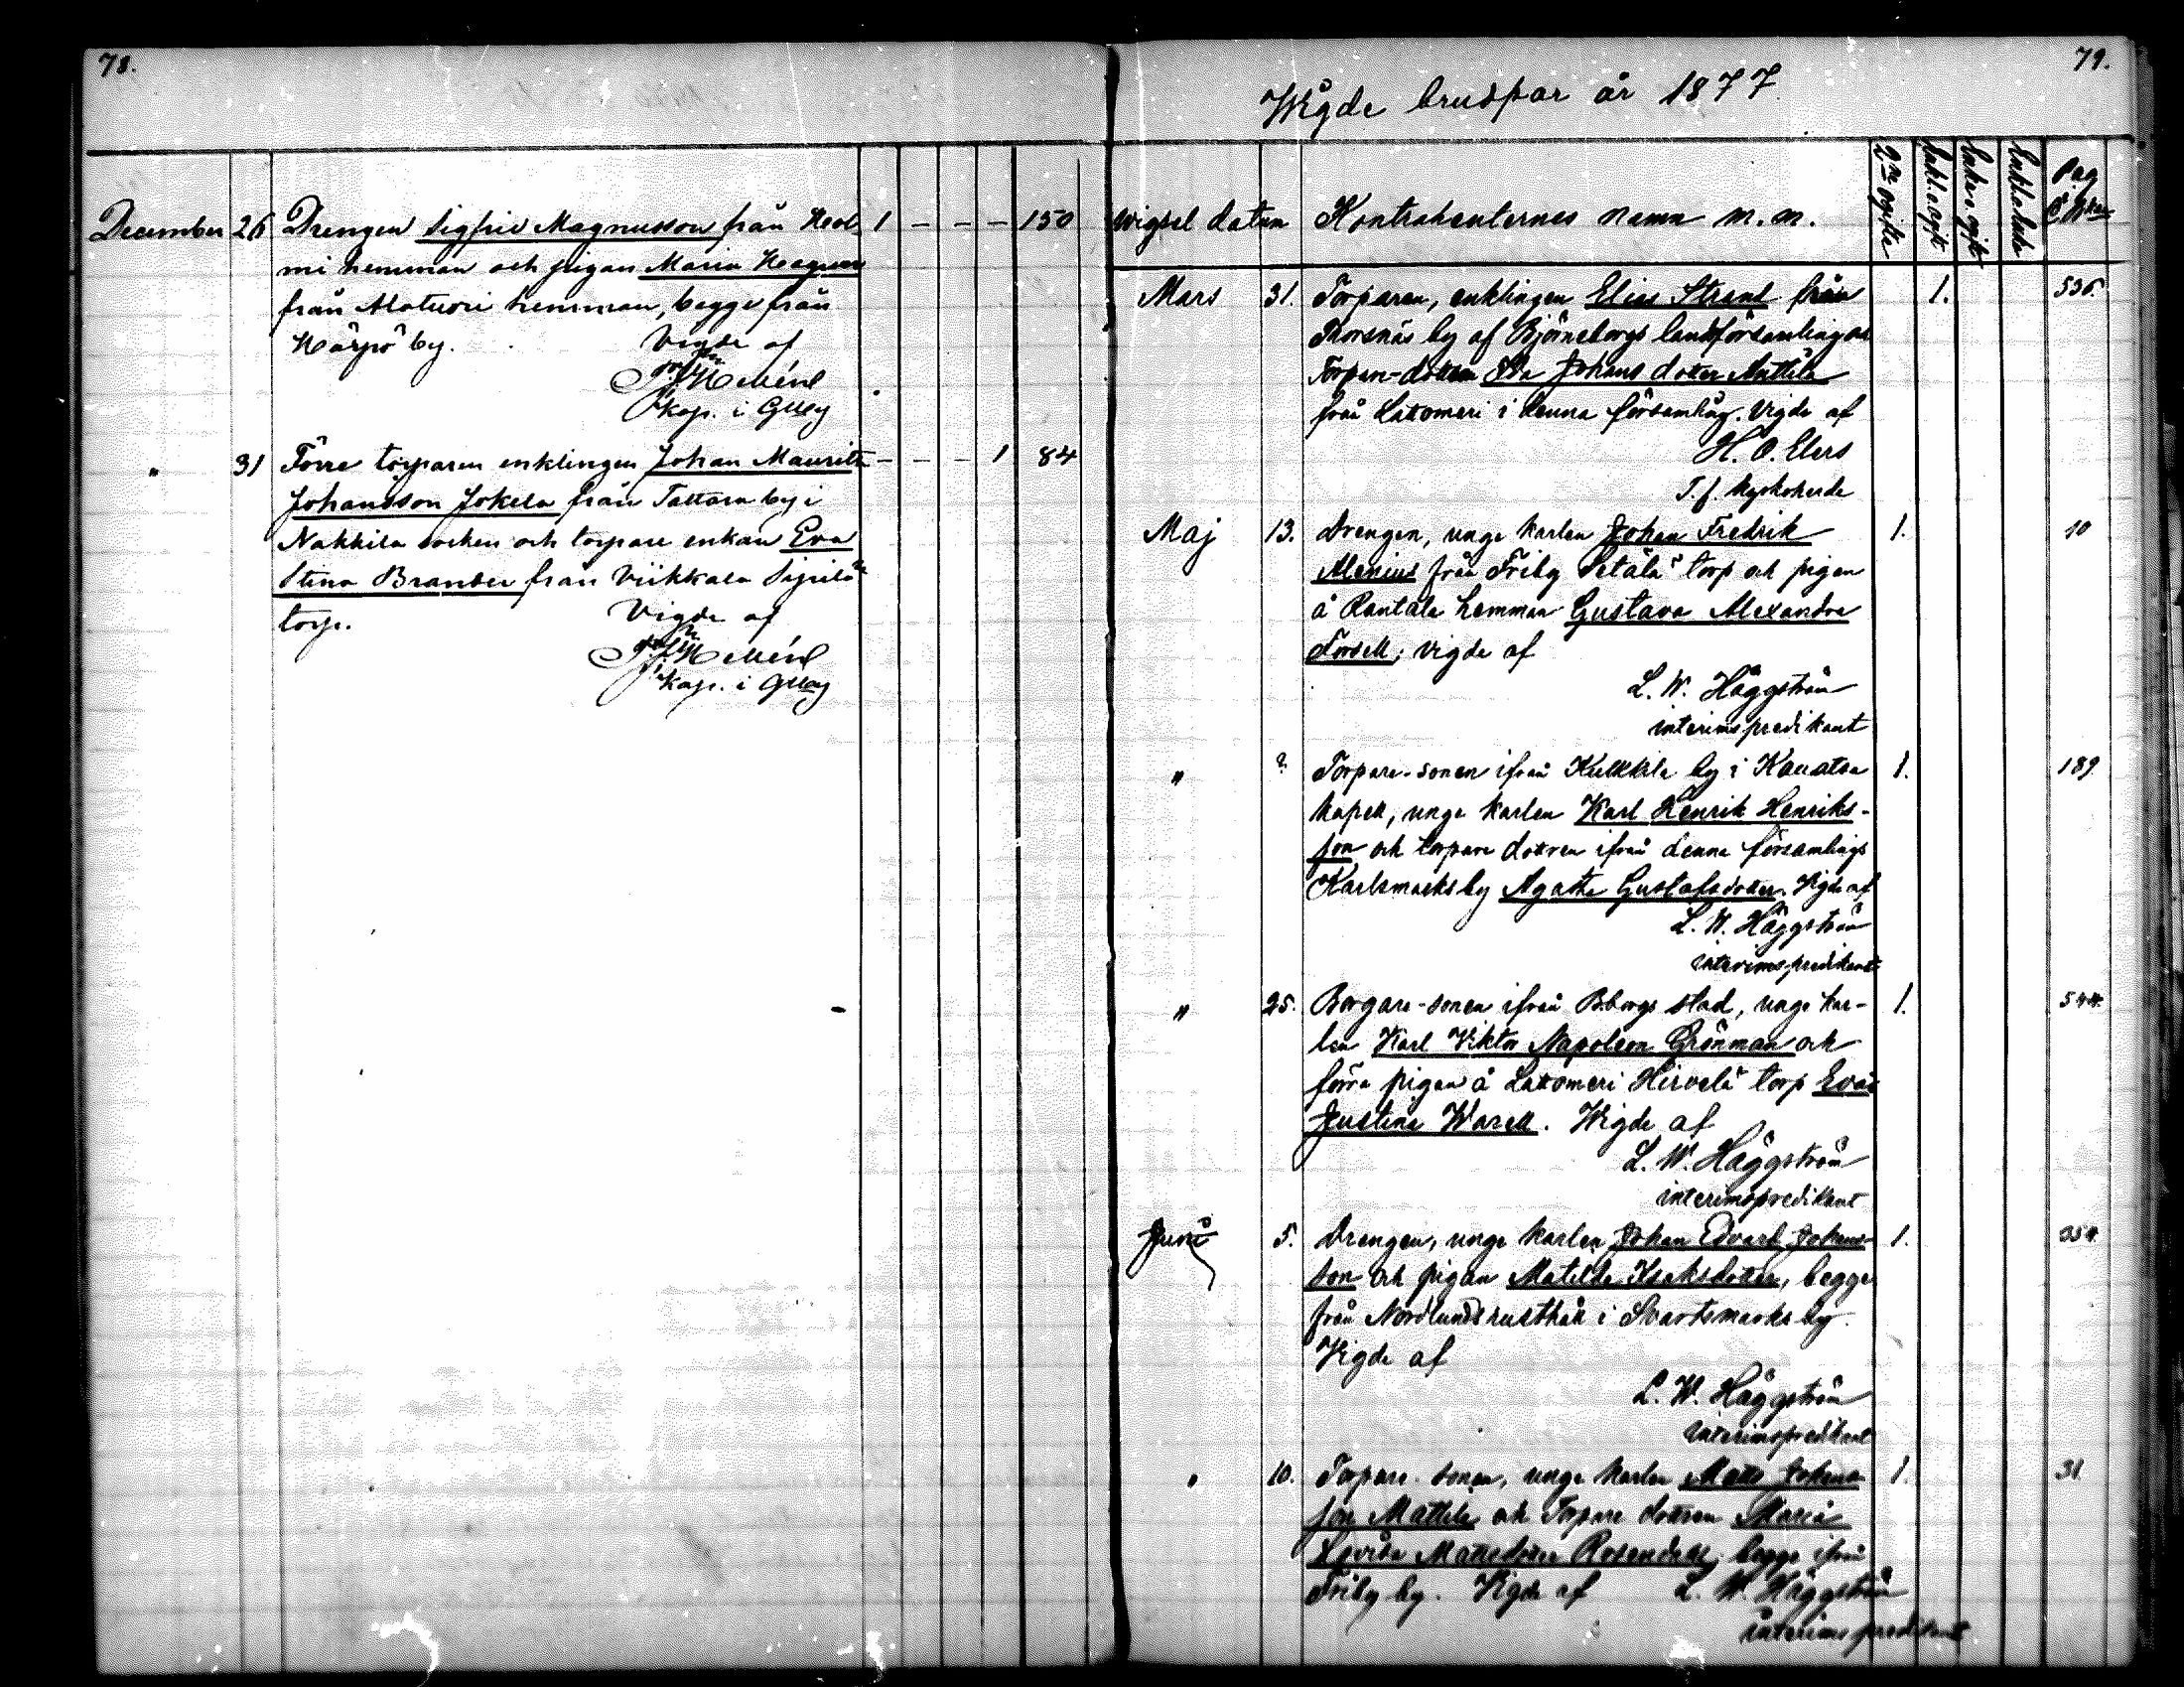 78.
December 26 Drengen Sigfrid Magnusson från Hol- 1 – – – 150
mi hemman och pigan Maria
från hemman, begge från
Kärpö by. Vigde af
kap. i Gllby
" 31 Förre torparen enklingen Johan Maurits – – – 1 84
Johansson Jokela från Tattara by i
Nakkila socken och torpare enkan Eva
Stina Brander från Viikkala
torp. Vigde af
kap. i Gllby
79.
Wigde brudpar år 1877
Wigsel datum Kontrahenternes namn m. m. 2ne ogifte Enkl. o. ogift Enka o. ogift Enkl. o. Enka Pag.
Mars 31. Torparen, enklingen Elias Strand från 1. 536.
Thorsnäs by af Björneborgs landsförsamling och
Torpare-dottren Eva Johans dotter Anttila
från Lattomeri i denna församling. Vigde af
H. O. Elers
T. f. Kyrkoherde
Maj 13. Drengen, unge karlen Johan Fredrik 1. 10
Alenius från Friby Setälä torp och pigan
å Rantala hemman Gustava Alexandra
Forsell; vigde af
L. W. Häggström
interimspredikant
" ? Torpare-sonen ifrån Kukkila by i Kauvatsa 1. 189
kapell, unge karlen Karl Henrik Henriks-
son och torpare dottren ifrån denna församlings
Karlsmarks by Agatha Gustafsdotter. Vigde af
L. W. Häggström
interimspredikant
" 25. Borgare-sonen ifrån B:borgs stad, unge kar- 1. 544.
len Karl Viktor Napoleon Grönman och
förra pigan å Lattomeri Hirvelä torp Eva
Justina Warell. Wigde af
L. W. Häggström
interimspredikant
Juni 5. Drengen, unge karlen Johan Edvard Johans- 1. 354.
son och pigan Matilda Isaksdotter, begge
från Nordlunds rusthåll i Svartsmarks by.
Vigde af
L. W. Häggström
interimspredikant
" 10. Torpare-sonen, unge karlen Matts Johans 1. 31
son Mattila och Torpare dottren Maria
Lovisa Mattsdotter Rosendahl, begge ifrån
Friby by. Vigde af L. W. Häggström
interimspredikant